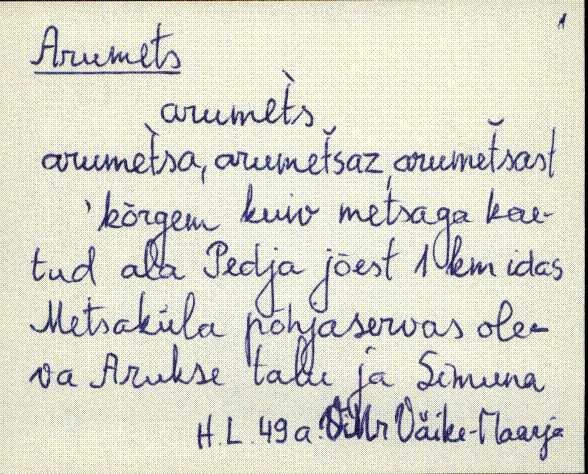 1
Arumets
arumet̀s
arumet̀sa, arumeťsaz, arumeťsast
'kõrgem kuiv metsaga kae-
tud ala Pedja jõest 1 km idas
Metsaküla põhjaservas ole-
va Arukse talu ja Simuna
H. L. 49 a. Väike-Maarja